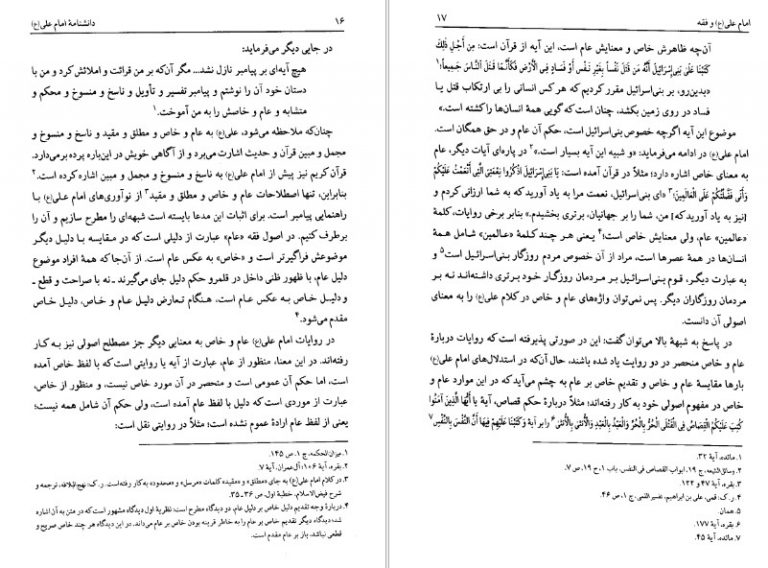 ۱۶ دانشنامهٔ امام علی(ع)
در جایی دیگر می‌فرماید:
هیچ آیه‌ای بر پیامبر نازل نشد... مگر آن‌که بر من قرائت و املائش کرد و من با
دستان خود آن را نوشتم و پیامبر تفسیر و تأویل و ناسخ و منسوخ و محکم و
متشابه و عام و خاصش را به من آموخت.۱
چنان‌که ملاحظه می‌شود، علی(ع) به عام و خاص و مطلق و مقید و ناسخ و منسوخ و
مجمل و مبین قرآن و حدیث اشارت می‌برد و از آگاهی خویش در این‌باره پرده برمی‌دارد.
قرآن کریم نیز پیش از امام علی(ع) به ناسخ و منسوخ و مجمل و مبین اشاره کرده است.۲
بنابراین، تنها اصطلاحات عام و خاص و مطلق و مقید۳ از نوآوری‌های امام علی(ع) با
راهنمایی پیامبر است. برای اثبات این مدعا بایسته است شبهه‌ای را مطرح سازیم و آن را
برطرف کنیم. در اصول فقه «عام» عبارت از دلیلی است که در مقایسه با دلیل دیگر
موضوعش فراگیرتر است و «خاص» به عکس عام است. از آن‌جا که همهٔ افراد موضوع
دلیل عام، با ظهور ظنی داخل در قلمرو حکم دلیل جای می‌گیرند ـ نه با صراحت و قطع ـ
و دلیل خاص به عکس عام است، هنگام تعارض دلیل عام و خاص، دلیل خاص
مقدم می‌شود.۴
در روایات امام علی(ع) عام و خاص به معنایی دیگر جز مصطلح اصولی نیز به کار
رفته‌اند. در این معنا، منظور از عام، عبارت از آیه یا روایتی است که با لفظ خاص آمده
است، اما حکم آن عمومی است و منحصر در آن مورد خاص نیست، و منظور از خاص،
عبارت از موردی است که دلیل با لفظ عام آمده است، ولی حکم آن شامل همه نیست؛
یعنی از لفظ عام ارادهٔ عموم نشده است؛ مثلاً در روایتی نقل است:
۱. میزان‌الحکمه، ج ۱، ص ۱۴۵.
۲. بقره، آیهٔ ۱۰۶؛ آل‌عمران، آیهٔ ۷.
۳. در کلام امام علی(ع) به جای «مطلق» و «مقید» کلمات «مرسل» و «محدود» به کار رفته‌است. ر.ک: نهج‌البلاغه، ترجمه و
شرح فیض‌الاسلام، خطبهٔ اول، ص ۳۶ ـ ۳۵.
۴. دربارهٔ وجه تقدیم دلیل خاص بر دلیل عام، دو دیدگاه مطرح است: نظریهٔ اول دیدگاه مشهور است که در متن به آن اشاره
شد؛ دیدگاه دیگر تقدیم خاص بر عام را به خاطر قرینه بودن خاص بر عام می‌داند. در این دیدگاه هر چند خاص صریح و
قطعی نباشد، باز بر عام مقدم است.
امام علی(ع) و فقه ۱۷
آن‌چه ظاهرش خاص و معنایش عام است، این آیه از قرآن است: مِن أَجلِ ذلِكَ
كَتَبْنَا عَلَىٰ بَنِي‌إِسْرَائِيلَ أَنَّهُ مَن قَتَلَ نَفْساً بِغَيْرِ نَفْسٍ أَوْ فَسَادٍ فِي الْأَرْضِ فَكَأَنَّمَا قَتَلَ النَّاسَ جَمِيعاً؛۱
بدین‌رو، بر بنی‌اسرائیل مقرر کردیم که هر کس انسانی را بی ارتکاب قتل یا
فساد در روی زمین بکشد، چنان است که گویی همهٔ انسان‌ها را کشته است.»
موضوع این آیه اگرچه خصوص بنی‌اسرائیل است، حکم آن عام و در حق همگان است.
امام علی(ع) در ادامه می‌فرماید: «و شبیه این آیه بسیار است.»۲ در پاره‌ای آیات دیگر، عام
به معنای خاص اشاره دارد؛ مثلاً در قرآن آمده است: يَا بَنِي‌إِسْرَائِيلَ اذْكُرُوا نِعْمَتِيَ الَّتِي أَنْعَمْتُ عَلَيْكُمْ
وَأَنِّي فَضَّلْتُكُمْ عَلَى الْعَالَمِينَ؛۳ «ای بنی‌اسرائیل، نعمت مرا به یاد آورید که به شما ارزانی کردم و
[نیز به یاد آورید که] من، شما را بر جهانیان، برتری بخشیدم.» بنابر برخی روایات، کلمهٔ
«عالمین» عام، ولی معنایش خاص است؛۴ یعنی هر چند کلمهٔ «عالمین» شامل همهٔ
انسان‌ها در همهٔ عصرها است، مراد از آن خصوص مردم روزگار بنی‌اسرائیل است۵ و
به عبارت دیگر، قوم بنی‌اسرائیل بر مردمان روزگار خود برتری داشته‌اند نه بر
مردمان روزگاران دیگر. پس نمی‌توان واژه‌های عام و خاص در کلام علی(ع) را به معنای
اصولی آن دانست.
در پاسخ به شبههٔ بالا می‌توان گفت: این در صورتی پذیرفته است که روایات دربارهٔ
عام و خاص منحصر در دو روایت یاد شده باشند، حال آن‌که در استدلال‌های امام علی(ع)
بارها مقایسهٔ عام و خاص و تقدیم خاص بر عام به چشم می‌آید که در این موارد عام و
خاص در مفهوم اصولی خود به کار رفته‌اند؛ مثلاً دربارهٔ حکم قصاص، آیهٔ یا أَيُّهَا الَّذِينَ آمَنُوا
كُتِبَ عَلَيْكُمُ الْقِصَاصُ فِي الْقَتْلَى الْحُرُّ بِالْحُرِّ وَالْعَبْدُ بِالْعَبْدِ وَالْأُنثَىٰ بِالْأُنثَىٰ۶ را بر آیهٔ وَكَتَبْنَا عَلَيْهِمْ فِيهَا أَنَّ النَّفْسَ بِالنَّفْسِ۷
۱. مائده، آیهٔ ۳۲.
۲. وسائل‌الشیعه، ج ۱۹، ابواب القصاص فی النفس، باب ۱، ح ۱۹، ص ۷.
۳. بقره، آیهٔ ۴۷ و ۱۲۲.
۴. ر.ک: قمی، علی بن ابراهیم، تفسیر القمی، ج ۱، ص ۴۶.
۵. همان.
۶. بقره، آیهٔ ۱۷۷.
۷. مائده، آیهٔ ۴۵.